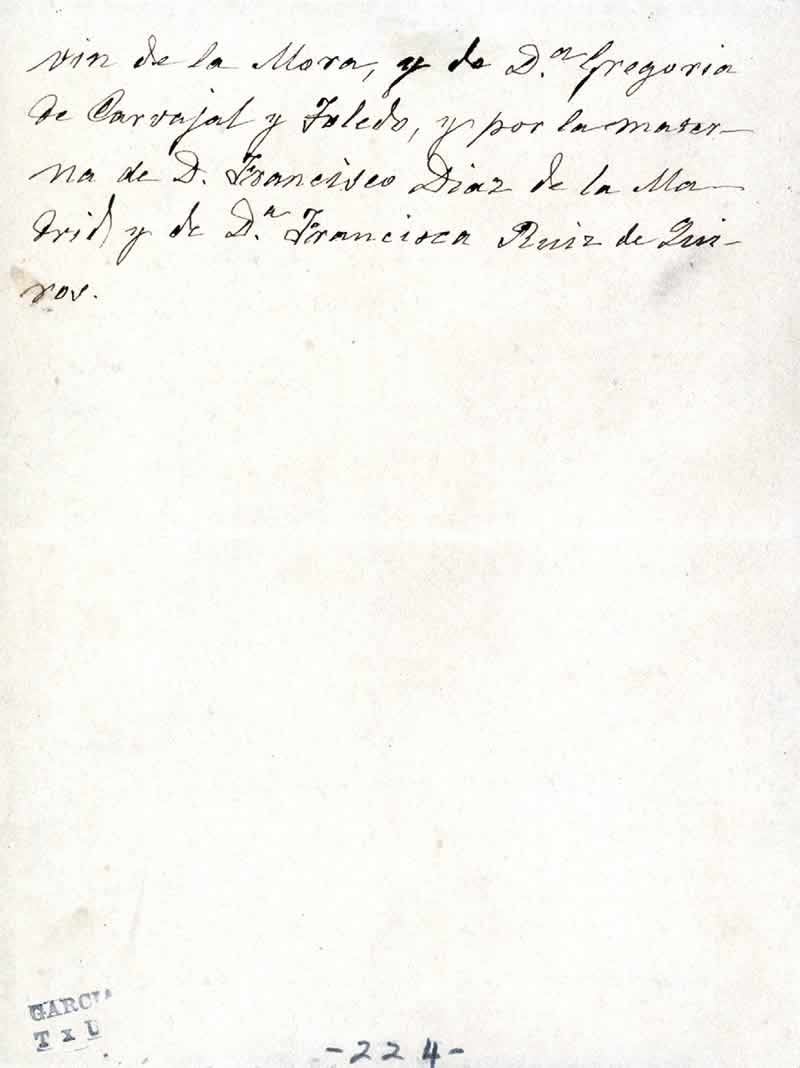 vin de la Mora, y de D.ª Gregoria
de Carvajal y Toledo, y por la mater-
na de D. Francisco Diaz de la Ma-
drid y de D.ª Francisca Ruiz de Qui-
ros.
GARCIA
T x U
-224-